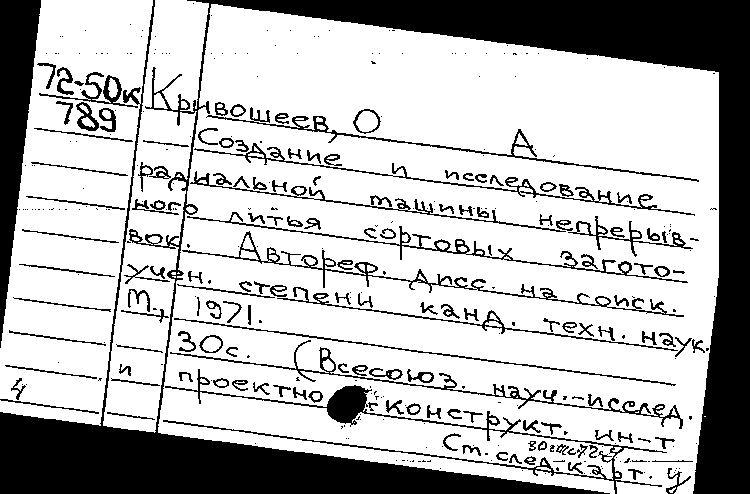 72-50к
789
Кривошеев, О А
Создание и исследование
радиальной машины непрерыв-
ного литья сортовых загото-
вок. Автореф. дисс. на соиск.
учен. степени канд. техн. наук.
М., 1971.
30с. (Всесоюз. науч.-исслед.
и проектно-конструкт. ин-т
4
Ст. след. карт.